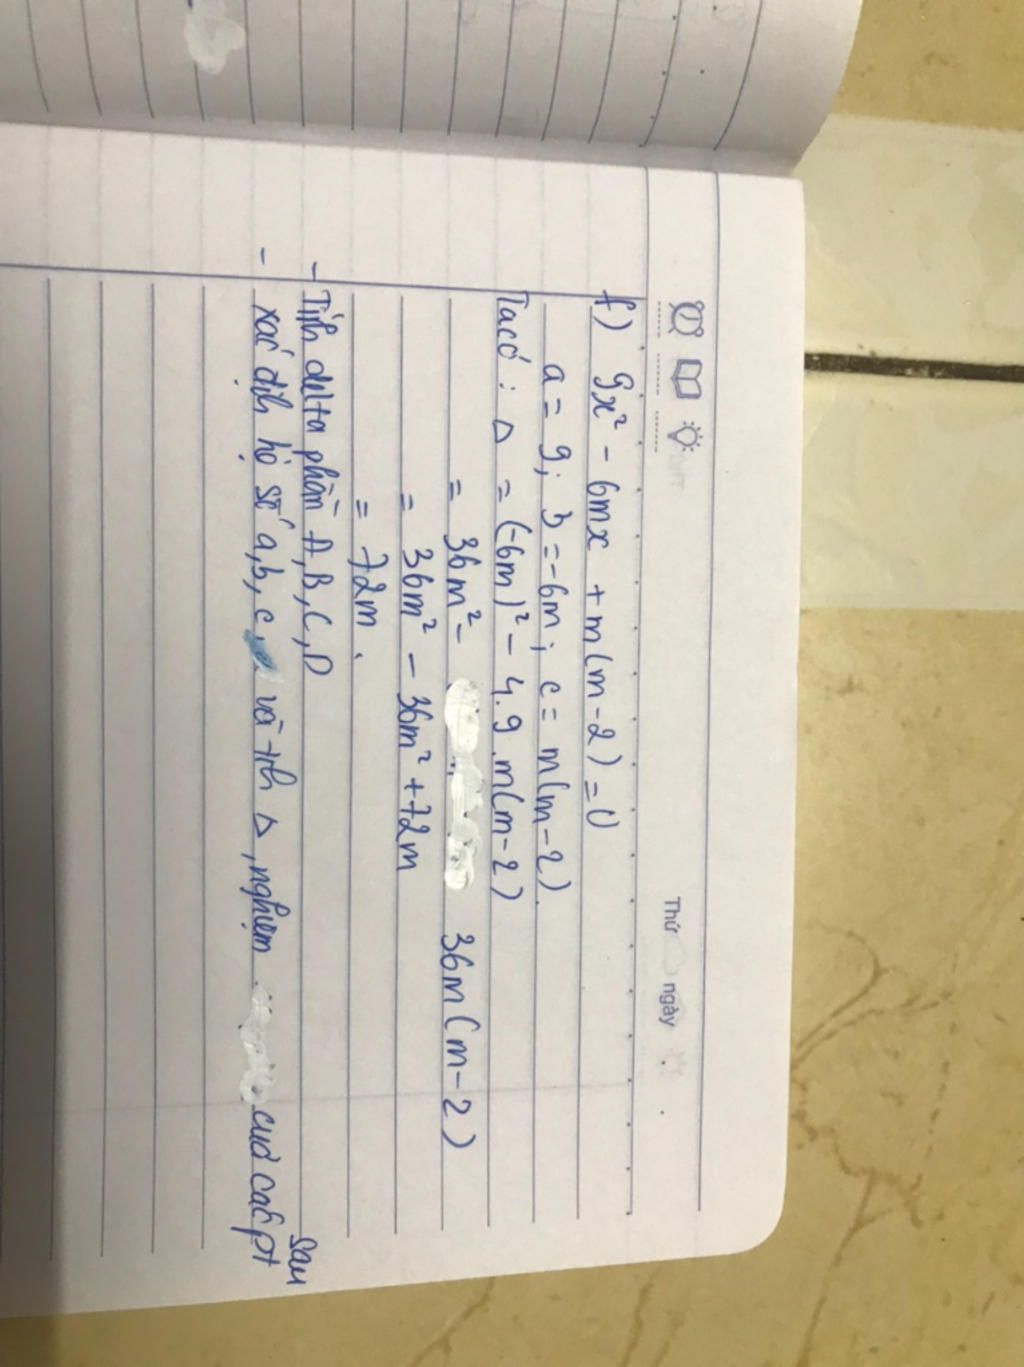 Thứ ngày
f) 9x² - 6mx + m(m-2) = 0
a = 9; b = -6m; c = m(m-2)
Ta có: Δ = (-6m)² - 4.9.m(m-2)
= 36m² - 36m(m-2)
= 36m² - 36m² + 72m
= 72m.
- Tính delta phần A, B, C, D
- xác định hệ số a, b, c, và tính Δ, nghiệm của các pt sau